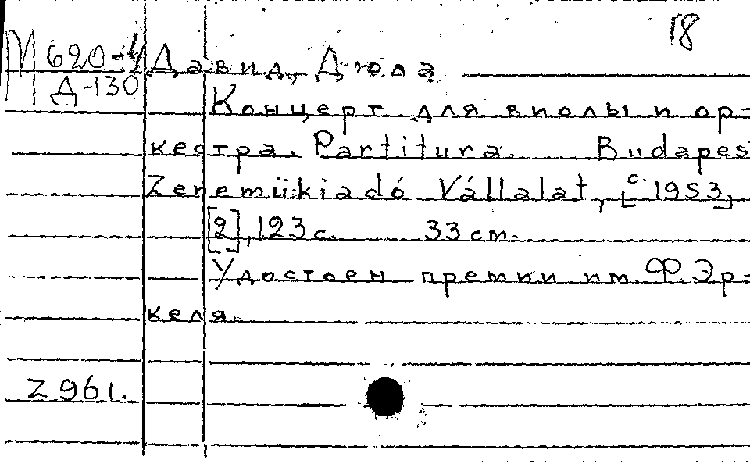 18
М 620-4 Давид, Дюла
Д-130
Концерт для виолы и ор-
кестра. Partitura. Budapes
Zenemükiadó Vállalat, [c 1953]
[2], 123 с. 33 см.
Удостоен премии им. Ф. Эр-
келя.
Z 961.